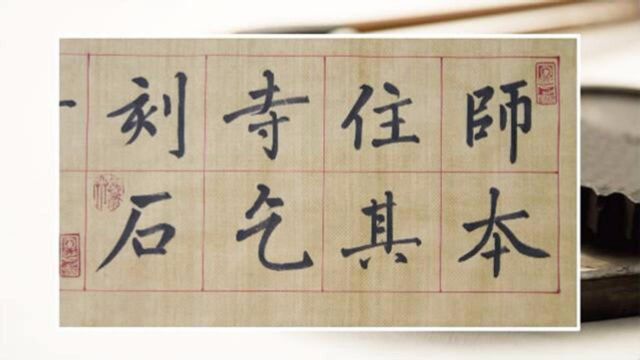 師本
住其
寺乞
刻石